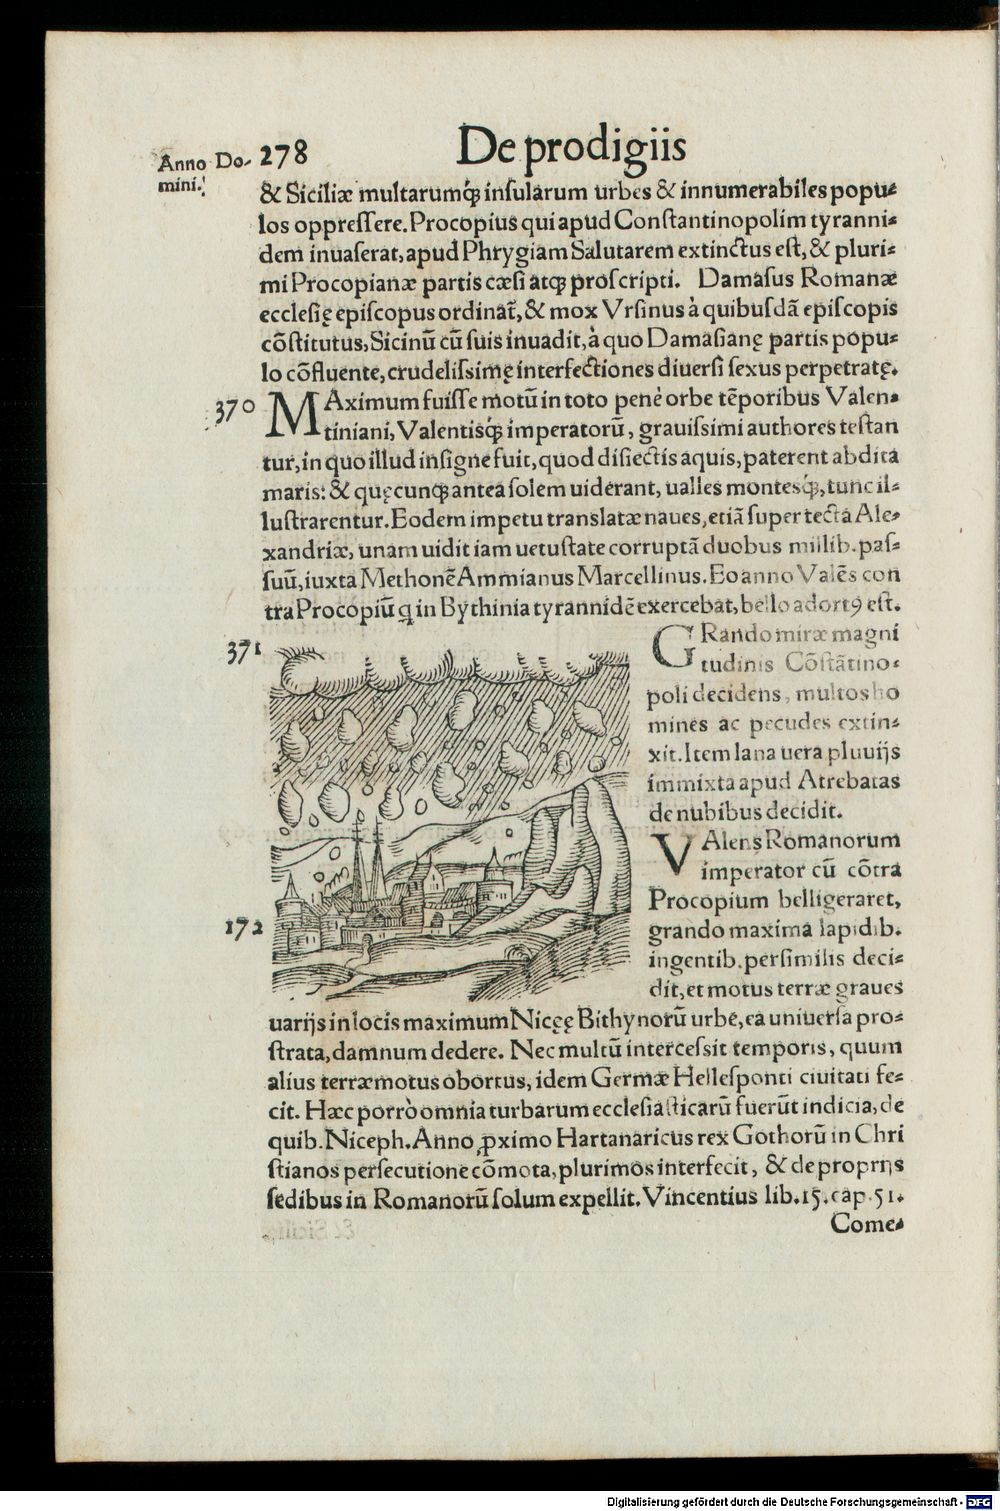 Anno Do- 278 De prodigiis
mini.
& Siciliæ multarumq́ꝫ insularum urbes & innumerabiles popu-
los oppressere. Procopius qui apud Constantinopolim tyranni-
dem inuaserat, apud Phrygiam Salutarem extinctus est, & pluri-
mi Procopianæ partis cæsi atqꝫ proscripti. Damasus Romanæ
ecclesię episcopus ordinat̃, & mox Vrsinus à quibusdã episcopis
cõstitutus, Sicinũ cũ suis inuadit, à quo Damasianę partis popu-
lo cõfluente, crudelissimę interfectiones diuersi sexus perpetratę.
370 MAximum fuisse motũ in toto penè orbe tẽporibus Valen-
tiniani, Valentisq́ꝫ imperatorũ, grauissimi authores testan
tur, in quo illud insigne fuit, quod disiectis aquis, paterent abdita
maris: & quęcunqꝫ antea solem uiderant, ualles montesq́ꝫ, tunc il-
lustrarentur. Eodem impetu translatæ naues, etiã super tecta Ale-
xandriæ, unam uidit iam uetustate corruptã duobus millib. pas-
suũ, iuxta Methonẽ Ammianus Marcellinus. Eo anno Valẽs con
tra Procopiũ q̃ in Bythinia tyrannidẽ exercebat, bello adortꝰ est.
371 GRando miræ magni
tudinis Cõstãtino-
poli decidens, multos ho
mines ac pecudes extin-
xit. Item lana uera pluuijs
immixta apud Atrebatas
de nubibus decidit.
VAlens Romanorum
imperator cũ cõtra
Procopium belligeraret,
172 grando maxima lapidib.
ingentib. persimilis deci-
dit, et motus terræ graues
uarijs in locis maximum Nicęę Bithynorũ urbe, ea uniuersa pro-
strata, damnum dedere. Nec multũ intercessit temporis, quum
alius terræmotus obortus, idem Germæ Hellesponti ciuitati fe-
cit. Hæc porrò omnia turbarum ecclesiasticarũ fuerũt indicia, de
quib. Niceph. Anno ꝓximo Hartanaricus rex Gothorũ in Chri
stianos persecutione cõmota, plurimos interfecit, & de proprijs
sedibus in Romanorũ solum expellit. Vincentius lib. 15. cap. 51.
Come-
Digitalisierung gefördert durch die Deutsche Forschungsgemeinschaft - DFG